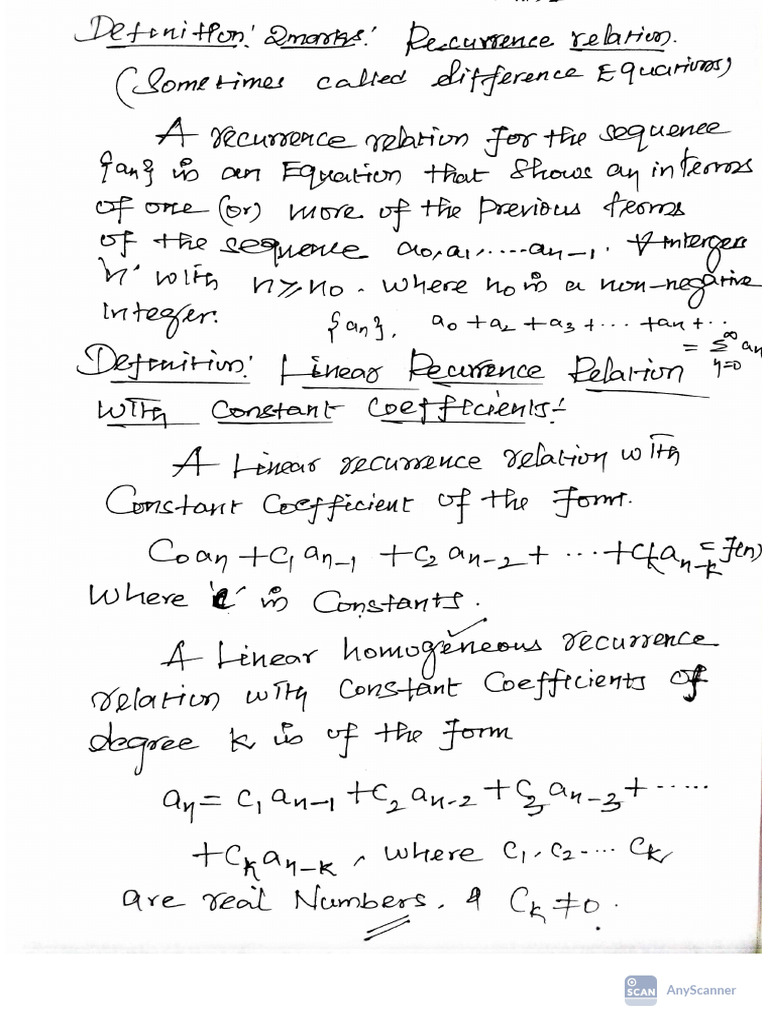 Definition: 2marks: Recurrence relation.
(Sometimes called difference Equations)
A recurrence relation for the sequence
{an} is an Equation that shows an interms
of one (or) more of the previous terms
of the sequence a0, a1, ..... an-1. ∀ integers
'n' with n ≥ n0. where n0 is a non-negative
integer.
{an}, a0 + a2 + a3 + ... + an + ..
= Σ∞n=0 an
Definition: Linear Recurrence Relation
with Constant Coefficients:-
A Linear recurrence relation with
Constant Coefficient of the form.
C0 an + C1 an-1 + C2 an-2 + ... + Ck an-k = f(n)
Where 'c' is Constants.
A Linear homogeneous recurrence
relation with Constant Coefficients of
degree k is of the form
an = C1 an-1 + C2 an-2 + C3 an-3 + ......
+ Ck an-k, where C1, C2 .... Ck
are real Numbers, & Ck ≠ 0.
SCAN AnyScanner